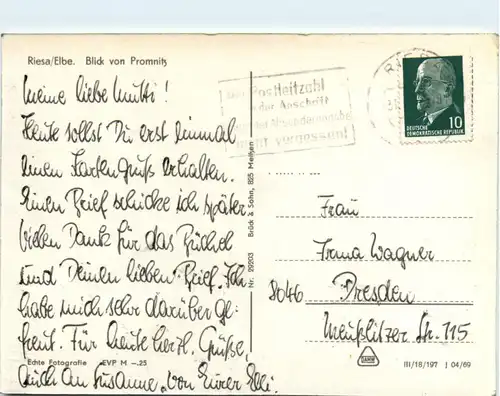 Riesa/Elbe. Blick von Promnitz
Meine liebe Mutti!
Heute sollst Du erst einmal
einen Kartengruß erhalten.
Einen Brief schicke ich später
Vielen Dank für das Büchel
und Deinen lieben Brief. Ich
habe mich sehr darüber ge-
freut. Für heute herzl. Grüße,
auch an Susanne, von Eurer Elli.
Echte Fotografie EVP M –.25
Nr. 29203 Brück & Sohn, 825 Meißen
Postleitzahl
in der Anschrift
Absenderangabe
nicht vergessen!
RIESA
10
DEUTSCHE
DEMOKRATISCHE REPUBLIK
Frau
Irma Wagner
8046 Dresden
Meußlitzer Str. 115
III/18/197 J 04/69